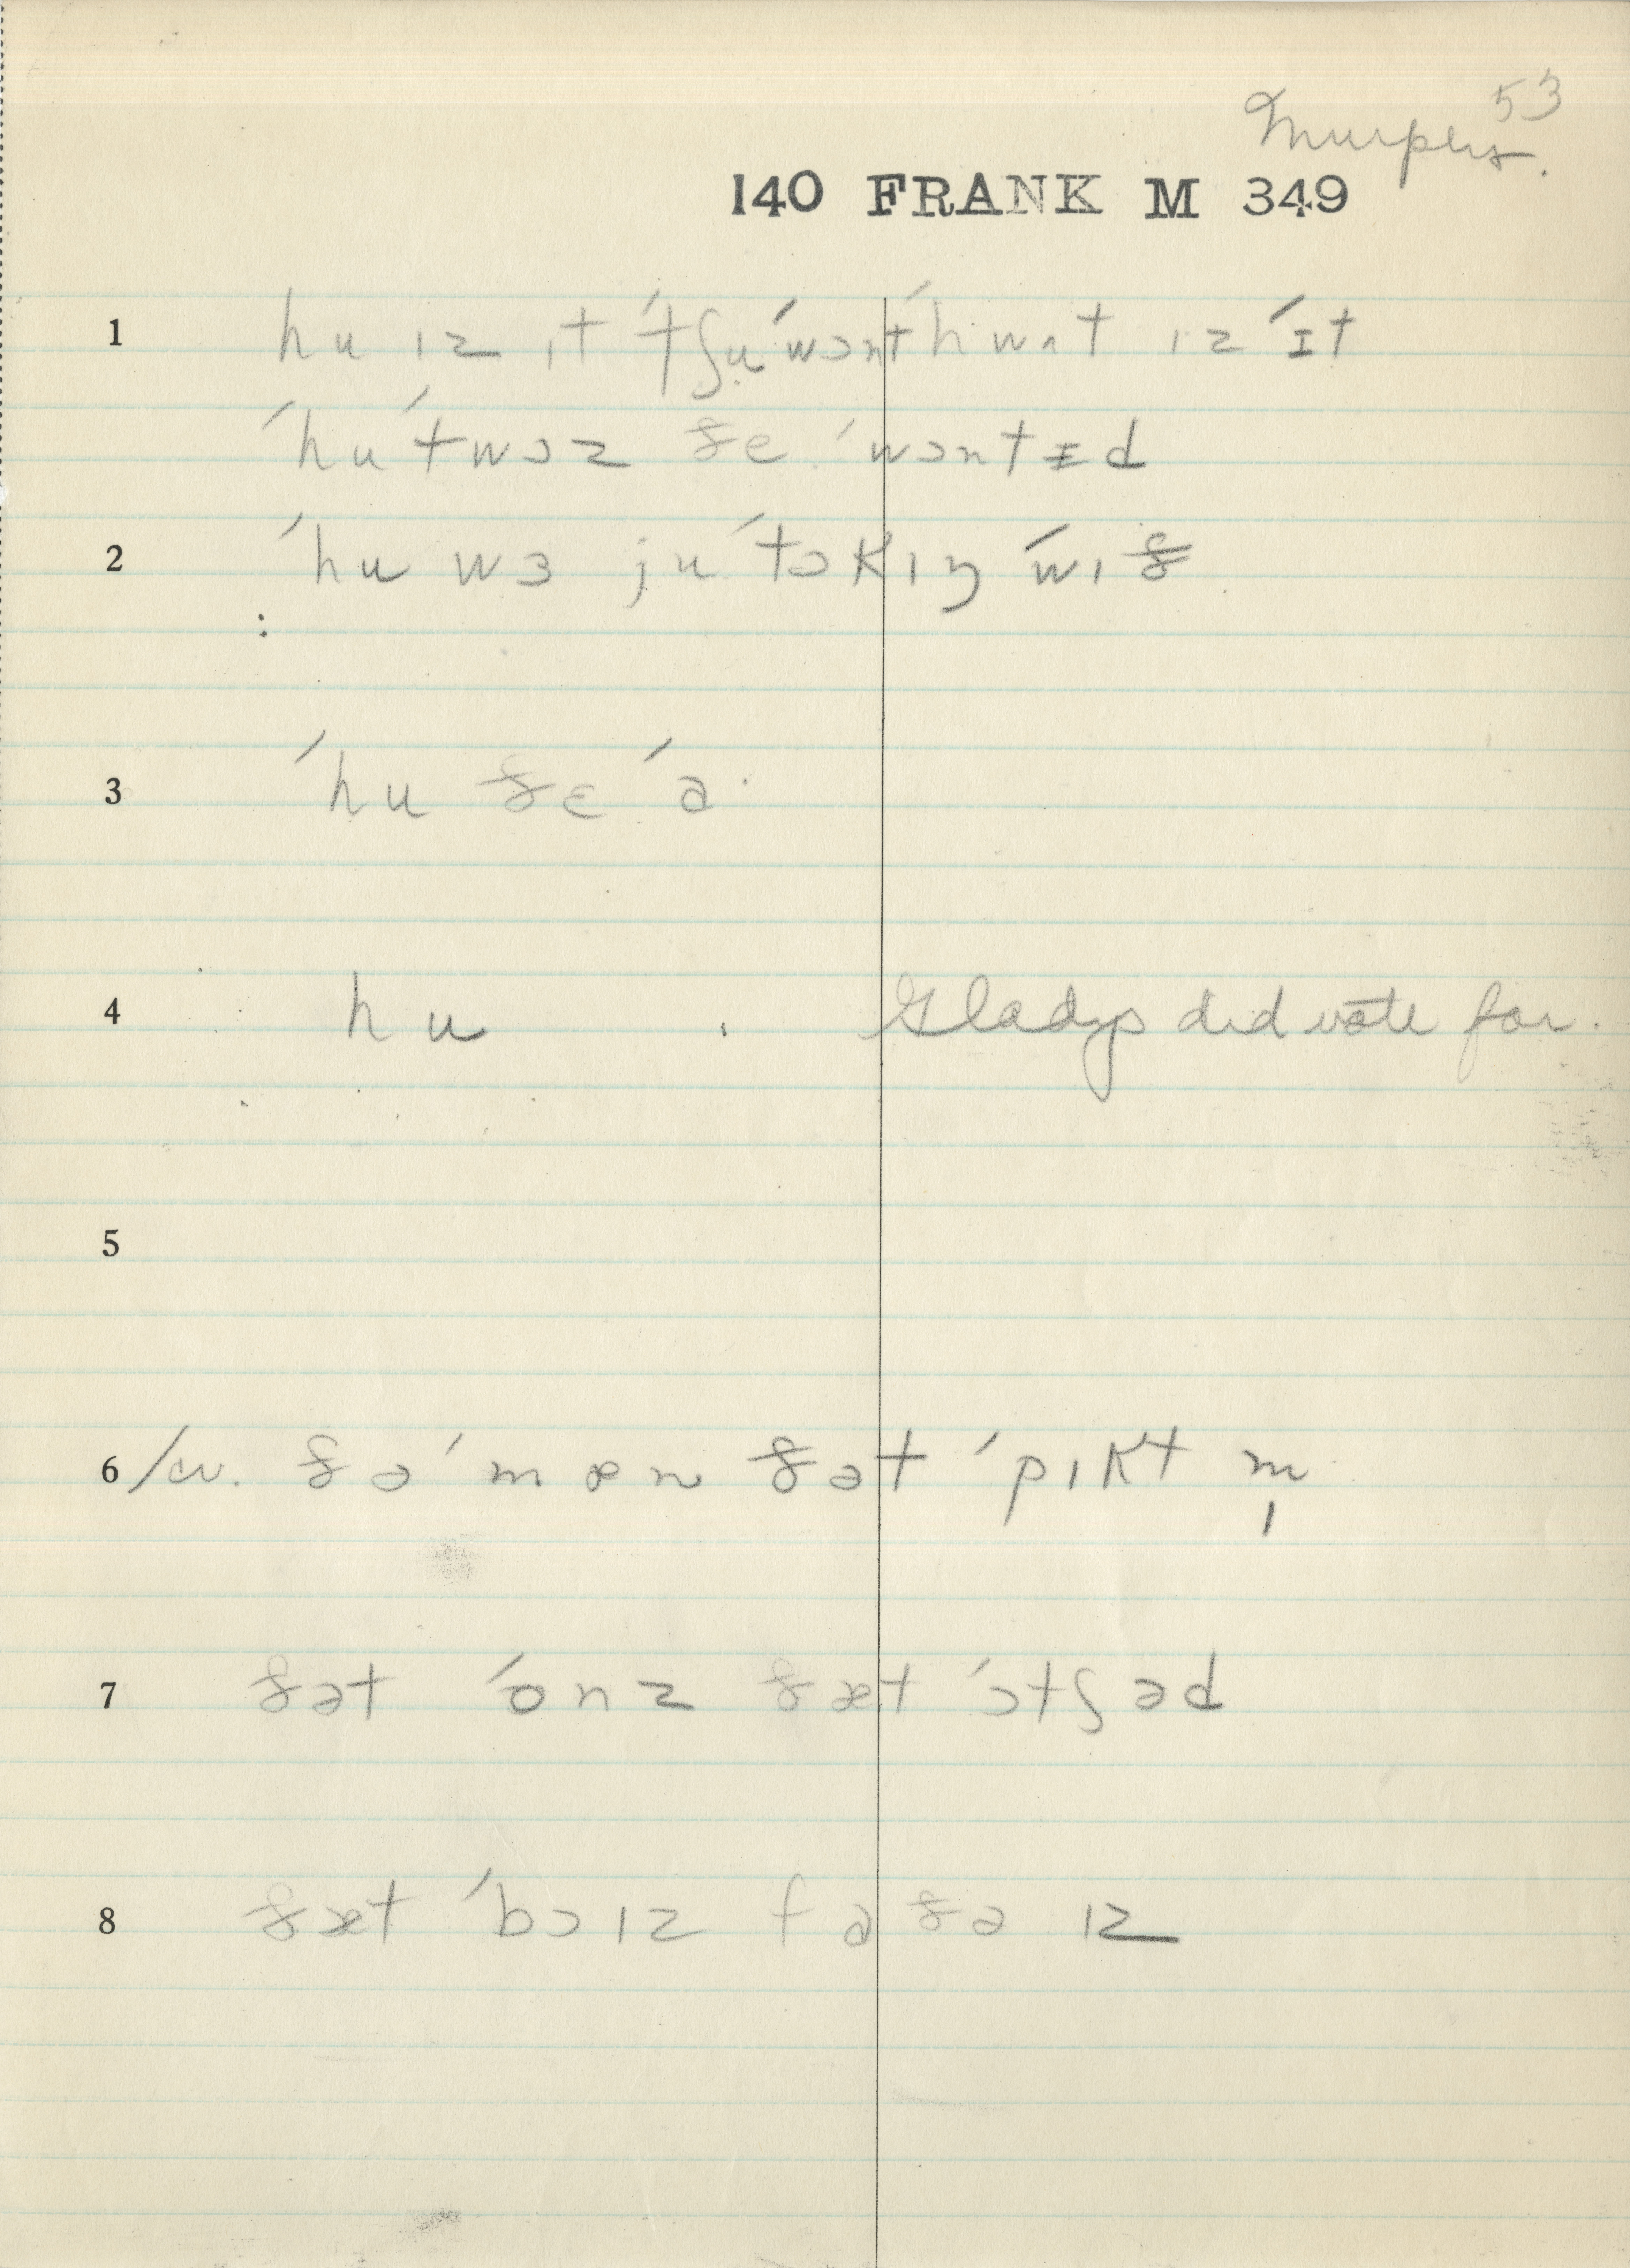 53
Murphy.
140 FRANK M 349
1 hu ɪz ɪt ˈtʃu ˈwɔnt ˈhwʌt ɪz ˈɪt
ˈhu ˈtwɔz ðe ˈwɔntɪd
2 ˈhu wɜ ju ˈtɔkɪŋ ˈwɪð
3 ˈhu ðɛ ˈa·
4 hu Gladys did vote for.
5
6 /cv. ðə ˈmæn ðət ˈpɪkt m̩
7 ðət ˈonz ðæt ˈɔtʃəd
8 ðæt ˈbɔɪz fɑðə ɪz